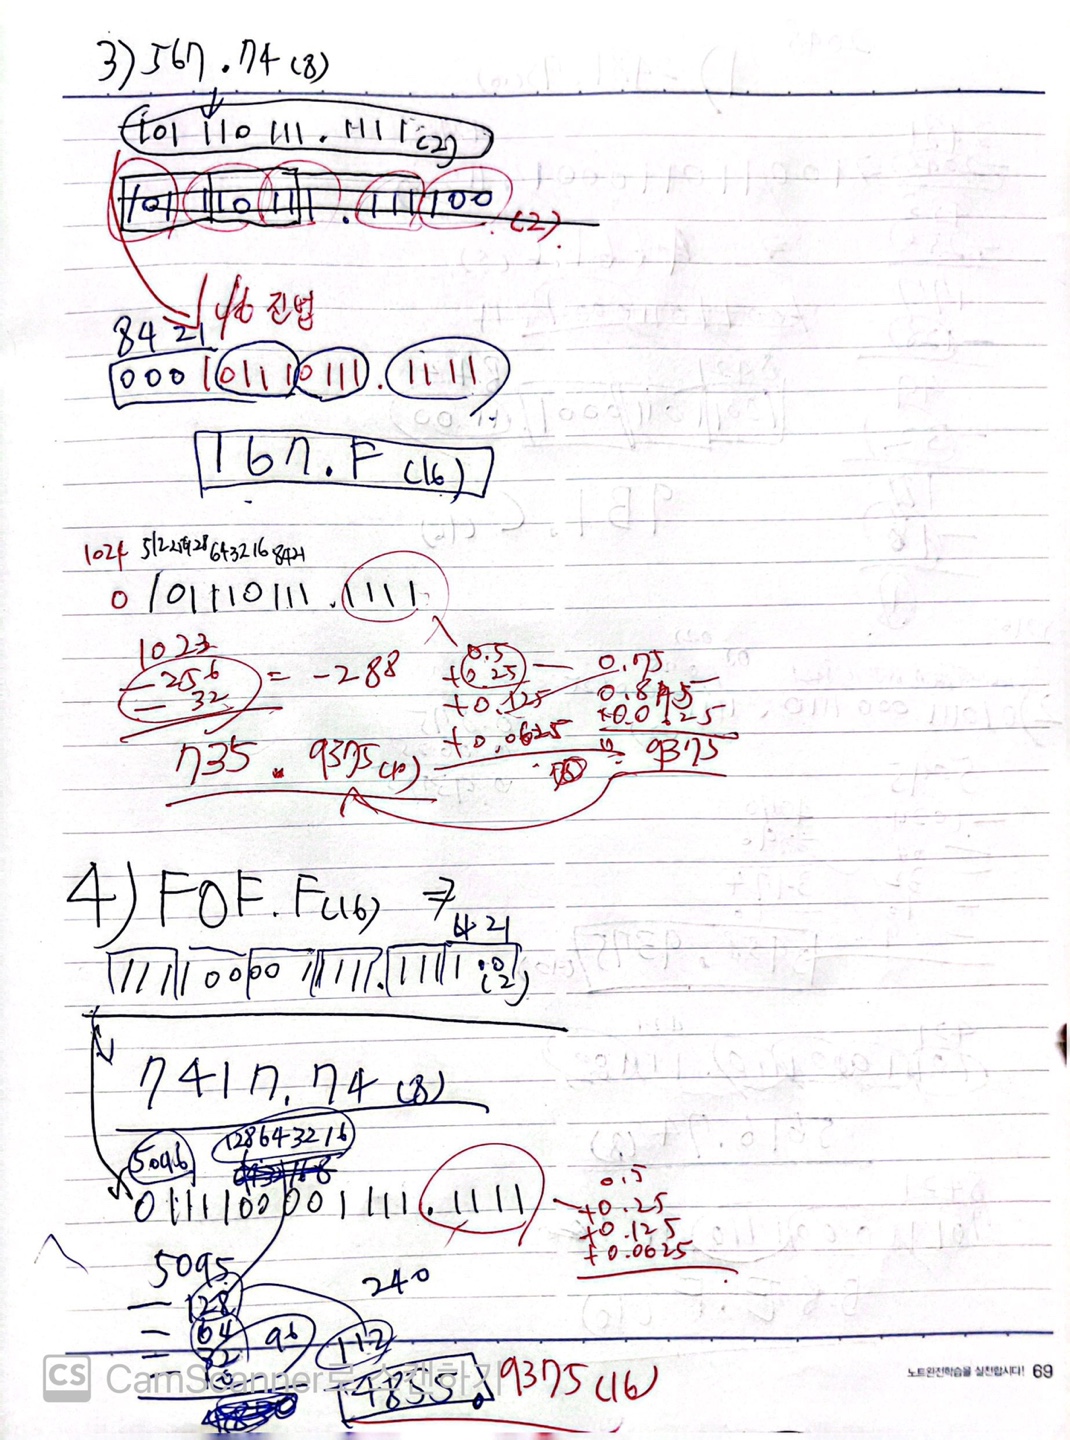 3) 567.74(8)
101 110 111 . 1111(2)
101 110 111 . 111 100 (2)
16진법
84 21
0001 0111 0111 . 1111
167.F (16)
1024 512 256 128 64 32 16 8421
0 101110111 . 1111
1023
-256
-32
= -288
0.5
+0.25
+0.125
+0.0625
0.75
9375
735 . 9375(10)
4) F0F.F(16) ⇒
421
111100001111.1111 00 (2)
7417.74 (8)
5096 128 64 32 16
0111100001111.1111
0.5
+0.25
+0.125
+0.0625
5095
-128
-64
-32
96
112
240
4855.9375 (16)
CS CamScanner로 스캔하기
노트완전학습을 실천합시다! 69